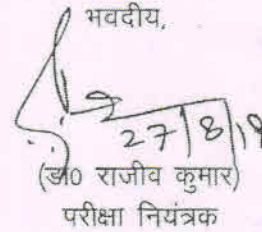 भवदीय,
27/8/18
(डा0 राजीव कुमार)
परीक्षा नियंत्रक